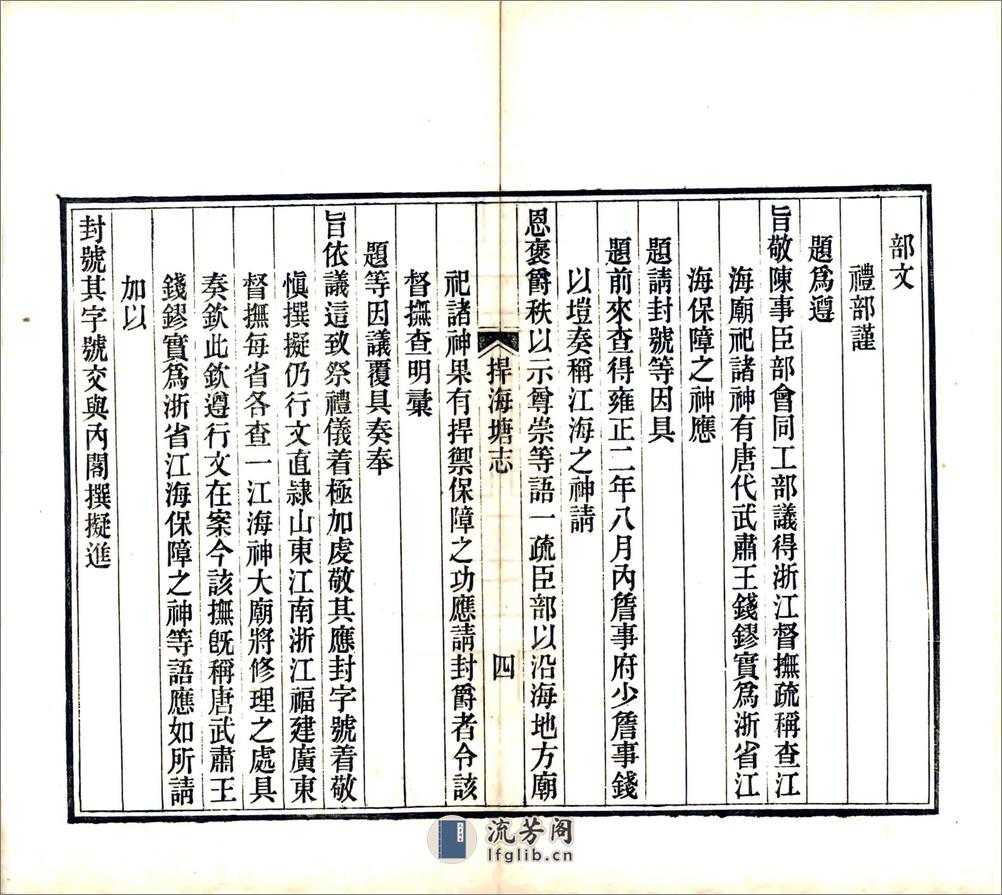 部文
禮部謹
題爲遵
旨敬陳事臣部會同工部議得浙江督撫疏稱查江
海廟祀諸神有唐代武肅王錢鏐實爲浙省江
海保障之神應
題請封號等因具
題前來查得雍正二年八月內詹事府少詹事錢
以塏奏稱江海之神請
恩褒爵秩以示尊崇等語一疏臣部以沿海地方廟
捍海塘志
四
祀諸神果有捍禦保障之功應請封爵者令該
督撫查明彙
題等因議覆具奏奉
旨依議這致祭禮儀着極加虔敬其應封字號着敬
愼撰擬仍行文直隷山東江南浙江福建廣東
督撫每省各查一江海神大廟將修理之處具
奏欽此欽遵行文在案今該撫旣稱唐武肅王
錢鏐實爲浙省江海保障之神等語應如所請
加以
封號其字號交與內閣撰擬進
流芳阁
lfglib.cn